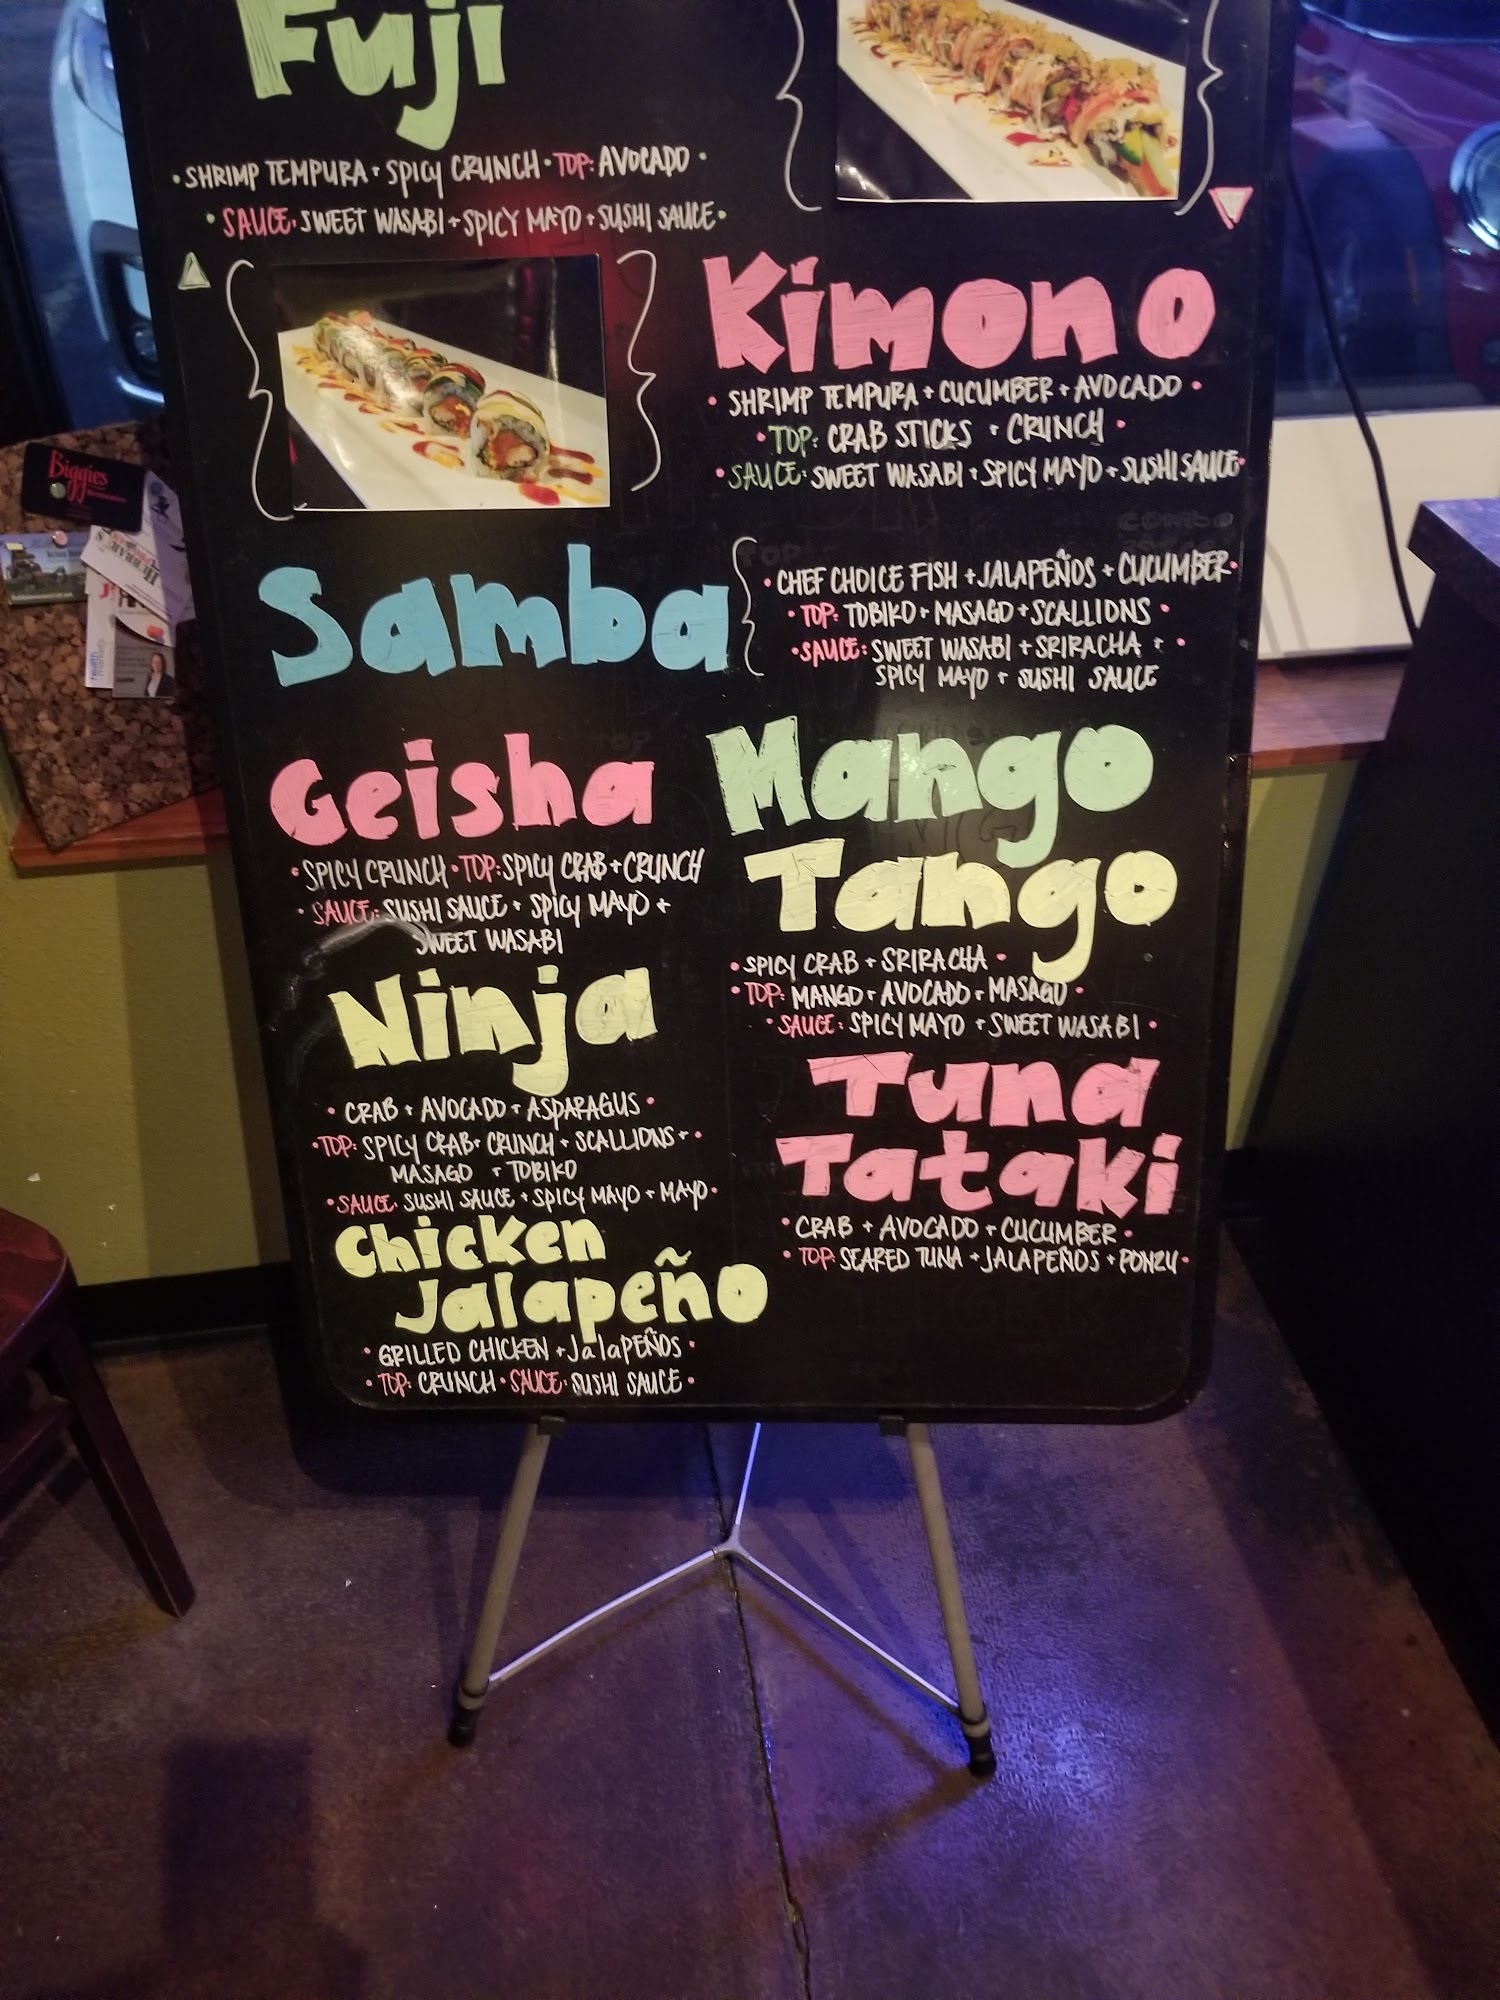 Fuji
• SHRIMP TEMPURA + SPICY CRUNCH • TOP: AVOCADO •
• SAUCE: SWEET WASABI + SPICY MAYO + SUSHI SAUCE •
Kimono
• SHRIMP TEMPURA + CUCUMBER + AVOCADO •
• TOP: CRAB STICKS + CRUNCH •
• SAUCE: SWEET WASABI + SPICY MAYO + SUSHI SAUCE •
Samba
• CHEF CHOICE FISH + JALAPEÑOS + CUCUMBER •
• TOP: TOBIKO + MASAGO + SCALLIONS •
• SAUCE: SWEET WASABI + SRIRACHA + •
SPICY MAYO + SUSHI SAUCE
Geisha
• SPICY CRUNCH • TOP: SPICY CRAB + CRUNCH
• SAUCE: SUSHI SAUCE + SPICY MAYO +
SWEET WASABI
Mango
Tango
• SPICY CRAB + SRIRACHA •
• TOP: MANGO + AVOCADO + MASAGO •
• SAUCE: SPICY MAYO + SWEET WASABI •
Ninja
• CRAB + AVOCADO + ASPARAGUS •
• TOP: SPICY CRAB + CRUNCH + SCALLIONS + •
MASAGO + TOBIKO
• SAUCE: SUSHI SAUCE + SPICY MAYO + MAYO •
Tuna
Tataki
• CRAB + AVOCADO + CUCUMBER •
• TOP: SEARED TUNA + JALAPEÑOS + PONZU •
Chicken
Jalapeño
• GRILLED CHICKEN + JalaPEÑOS •
• TOP: CRUNCH • SAUCE: SUSHI SAUCE •
Biggies